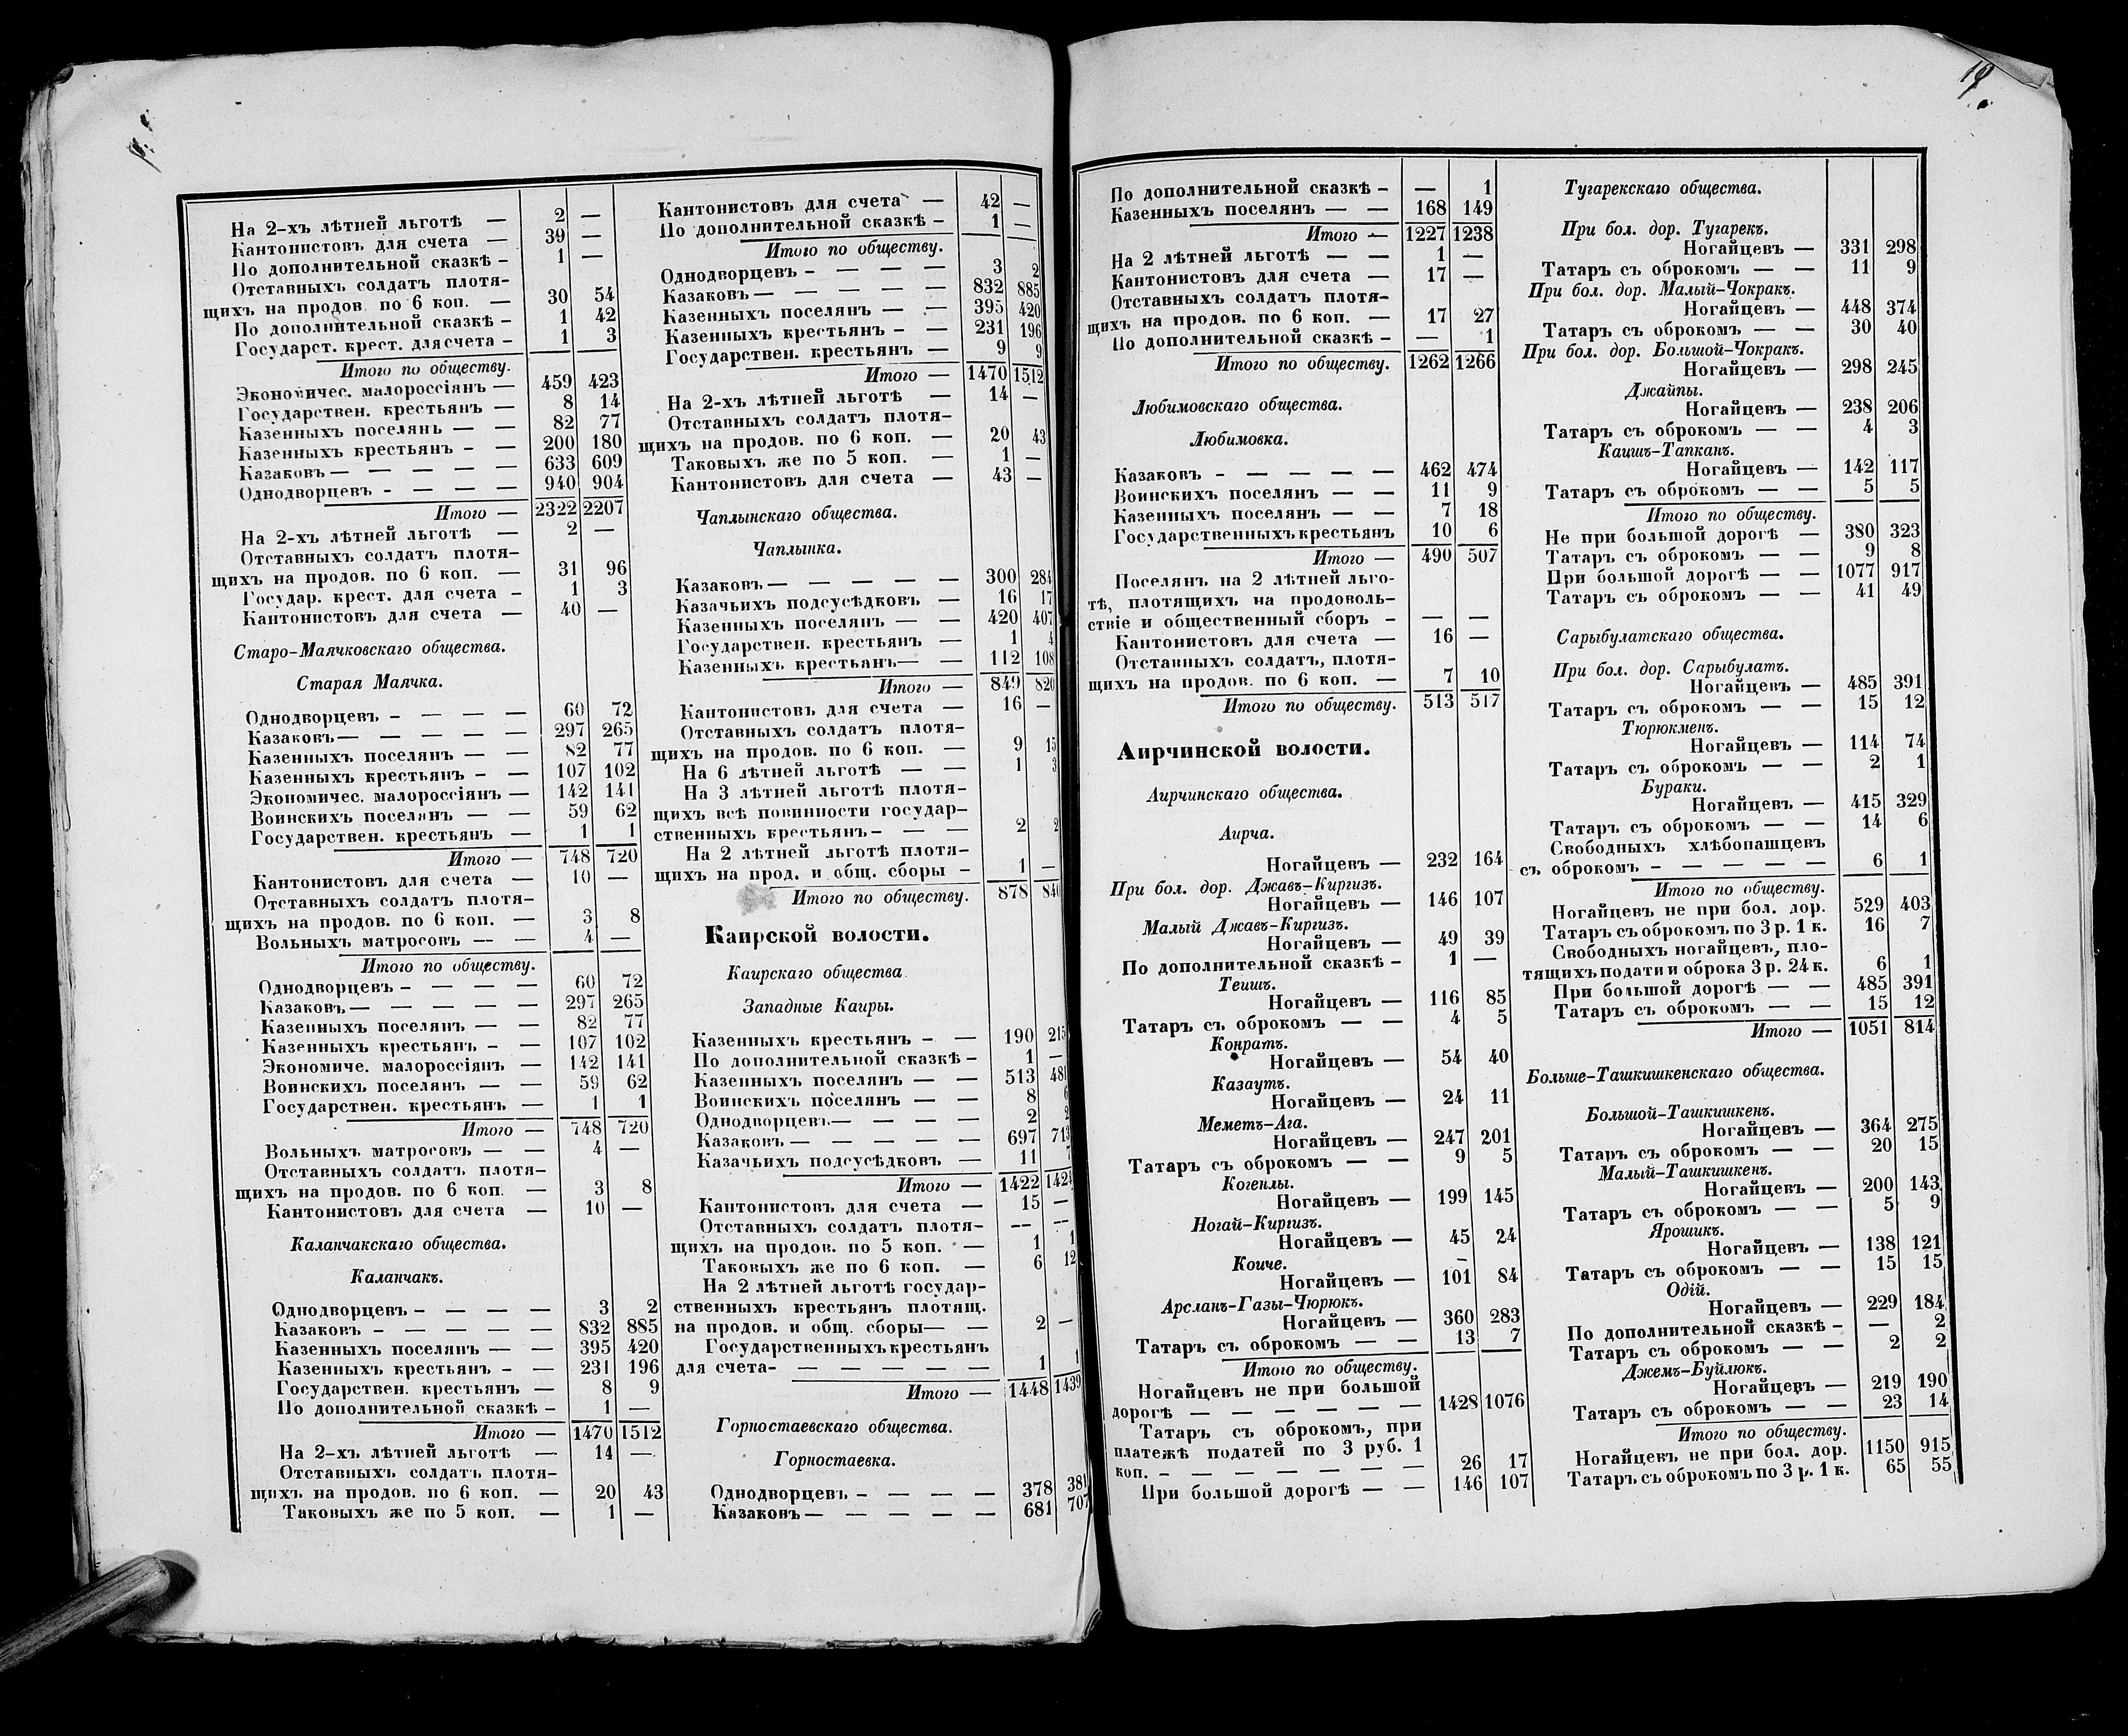 На 2-хъ лѣтней льготѣ — 2 —
Кантонистовъ для счета — 39 —
По дополнительной сказкѣ - 1 —
Отставныхъ солдатъ плотя-
щихъ на продов. по 6 коп. — 30 54
По дополнительной сказкѣ - 1 42
Государст. крест. для счета - 1 3
Итого по обществу.
Экономичес. малороссіянъ — 459 423
Государствен. крестьянъ — 8 14
Казенныхъ поселянъ — — 82 77
Казенныхъ крестьянъ - — 200 180
Казаковъ — — — — — 633 609
Однодворцевъ - — — — 940 904
Итого — 2322 2207
На 2-хъ лѣтней льготѣ — 2 —
Отставныхъ солдатъ плотя-
щихъ на продов. по 6 коп. — 31 96
Государ. крест. для счета - 1 3
Кантонистовъ для счета — 40 —
Старо-Маячковскаго общества.
Старая Маячка.
Однодворцевъ - — — — 60 72
Казаковъ — — — — — 297 265
Казенныхъ поселянъ — — 82 77
Казенныхъ крестьянъ - — 107 102
Экономичес. малороссіянъ — 142 141
Воинскихъ поселянъ — — 59 62
Государствен. крестьянъ — 1 1
Итого — 748 720
Кантонистовъ для счета — 10 —
Отставныхъ солдатъ плотя-
щихъ на продов. по 6 коп. — 3 8
Вольныхъ матросовъ — — 4 —
Итого по обществу.
Однодворцевъ - — — — 60 72
Казаковъ — — — — — 297 265
Казенныхъ поселянъ — — 82 77
Казенныхъ крестьянъ - — 107 102
Экономиче. малороссіянъ — 142 141
Воинскихъ поселянъ — — 59 62
Государствен. крестьянъ — 1 1
Итого — 748 720
Вольныхъ матросовъ — — 4 —
Отставныхъ солдатъ плотя-
щихъ на продов. по 6 коп. — 3 8
Кантонистовъ для счета — 10 —
Каланчакскаго общества.
Каланчакъ.
Однодворцевъ - — — — 3 2
Казаковъ - — — — — 832 885
Казенныхъ поселянъ — — 395 420
Казенныхъ крестьянъ - — 231 196
Государствен. крестьянъ — 8 9
По дополнительной сказкѣ - 1 —
Итого — 1470 1512
На 2-хъ лѣтней льготѣ — 14 —
Отставныхъ солдатъ плотя-
щихъ на продов. по 6 коп. — 20 43
Таковыхъ же по 5 коп. — 1 —
Кантонистовъ для счета — 42 —
По дополнительной сказкѣ - 1 —
Итого по обществу.
Однодворцевъ - — — — 3 2
Казаковъ — — — — — 832 885
Казенныхъ поселянъ — — 395 420
Казенныхъ крестьянъ - — 231 196
Государствен. крестьянъ — 9 9
Итого — 1470 1512
На 2-хъ лѣтней льготѣ — 14 —
Отставныхъ солдатъ плотя-
щихъ на продов. по 6 коп. — 20 43
Таковыхъ же по 5 коп. — 1 —
Кантонистовъ для счета — 43 —
Чаплынскаго общества.
Чаплынка.
Казаковъ — — — — — 300 284
Казачьихъ подсусѣдковъ — 16 17
Казенныхъ поселянъ — — 420 407
Государствен. крестьянъ — 1 4
Казенныхъ крестьянъ — — 112 108
Итого — 849 820
Кантонистовъ для счета — 16 —
Отставныхъ солдатъ плотя-
щихъ на продов. по 6 коп. — 9 15
На 6 лѣтней льготѣ — — 1 3
На 3 лѣтней льготѣ плотя-
щихъ всѣ повинности государ-
ственныхъ крестьянъ - — — 2 2
На 2 лѣтней льготѣ плотя-
щихъ на прод. и общ. сборы - 1 —
Итого по обществу. 878 840
Каирской волости.
Каирскаго общества
Западные Каиры.
Казенныхъ крестьянъ - — 190 215
По дополнительной сказкѣ - 1 —
Казенныхъ поселянъ — — 513 481
Воинскихъ поселянъ — — 8 6
Однодворцевъ — — — — 2 2
Казаковъ — — — — — 697 713
Казачьихъ подсусѣдковъ — 11 7
Итого — 1422 1424
Кантонистовъ для счета — 15 —
Отставныхъ солдатъ плотя- — —
щихъ на продов. по 5 коп. — 1 1
Таковыхъ же по 6 коп. — 6 12
На 2 лѣтней льготѣ государ-
ственныхъ крестьянъ плотящ.
на продов. и общ. сборы — — 2 —
Государственныхъ крестьянъ
для счета - — — — — — 1 1
Итого — 1448 1439
Горностаевскаго общества.
Горностаевка.
Однодворцевъ - — — — 378 381
Казаковъ — — — — — 681 707
19.
По дополнительной сказкѣ - — 1
Казенныхъ поселянъ — — 168 149
Итого — 1227 1238
На 2 лѣтней льготѣ — — 1 —
Кантонистовъ для счета — 17 —
Отставныхъ солдатъ плотя-
щихъ на продов. по 6 коп. — 17 27
По дополнительной сказкѣ - — 1
Итого по обществу. 1262 1266
Любимовскаго общества.
Любимовка.
Казаковъ - — — — — 462 474
Воинскихъ поселянъ — — 11 9
Казенныхъ поселянъ — — 7 18
Государственныхъ крестьянъ 10 6
Итого — 490 507
Поселянъ на 2 лѣтней льго-
тѣ, плотящихъ на продоволь-
ствіе и общественный сборъ - — —
Кантонистовъ для счета — 16 —
Отставныхъ солдатъ, плотя-
щихъ на продов. по 6 коп. — 7 10
Итого по обществу. 513 517
Аирчинской волости.
Аирчинскаго общества.
Аирча.
Ногайцевъ — 232 164
При бол. дор. Джавъ-Киргизъ.
Ногайцевъ — 146 107
Малый Джавъ-Киргизъ.
Ногайцевъ — 49 39
По дополнительной сказкѣ - 1 —
Теишъ.
Ногайцевъ — 116 85
Татаръ съ оброкомъ — — 4 5
Конратъ.
Ногайцевъ — 54 40
Казаутъ.
Ногайцевъ — 24 11
Меметъ-Ага.
Ногайцевъ — 247 201
Татаръ съ оброкомъ — — 9 5
Когенлы.
Ногайцевъ — 199 145
Ногай-Киргизъ.
Ногайцевъ — 45 24
Коиче. –
Ногайцевъ — 101 84
Арсланъ-Газы-Чюрюкъ.
Ногайцевъ — 360 283
Татаръ съ оброкомъ — — 13 7
Итого по обществу.
Ногайцевъ не при большой
дорогѣ — — — — — — 1428 1076
Татаръ съ оброкомъ, при
платежѣ податей по 3 руб. 1
коп. - — — — — — — 26 17
При большой дорогѣ — — 146 107
Тугарекскаго общества.
При бол. дор. Тугарекъ.
Ногайцевъ — 331 298
Татаръ съ оброкомъ — — 11 9
При бол. дор. Малый-Чокракъ.
Ногайцевъ — 448 374
Татаръ съ оброкомъ — — 30 40
При бол. дор. Большой-Чокракъ.
Ногайцевъ — 298 245
Джайпы.
Ногайцевъ — 238 206
Татаръ съ оброкомъ — — 4 3
Каишъ-Тапканъ.
Ногайцевъ — 142 117
Татаръ съ оброкомъ — — 5 5
Итого по обществу.
Не при большой дорогѣ — 380 323
Татаръ съ оброкомъ — — 9 8
При большой дорогѣ — — 1077 917
Татаръ съ оброкомъ — — 41 49
Сарыбулатскаго общества.
При бол. дор. Сарыбулатъ.
Ногайцевъ — 485 391
Татаръ съ оброкомъ — — 15 12
Тюрюкменъ.
Ногайцевъ — 114 74
Татаръ съ оброкомъ — — 2 1
Бураки.
Ногайцевъ — 415 329
Татаръ съ оброкомъ — — 14 6
Свободныхъ хлѣбопашцевъ
съ оброкомъ - — — — — 6 1
Итого по обществу.
Ногайцевъ не при бол. дор. 529 403
Татаръ съ оброкомъ по 3 р. 1 к. 16 7
Свободныхъ ногайцевъ, пло-
тящихъ подати и оброка 3 р. 24 к. 6 1
При большой дорогѣ — — 485 391
Татаръ съ оброкомъ — — 15 12
Итого — 1051 814
Больше-Ташкишкенскаго общества.
Большой-Ташкишкенъ.
Ногайцевъ — 364 275
Татаръ съ оброкомъ — — 20 15
Малый-Ташкишкенъ.
Ногайцевъ — 200 143
Татаръ съ оброкомъ — — 5 9
Ярошикъ.
Ногайцевъ — 138 121
Татаръ съ оброкомъ — — 15 15
Одій.
Ногайцевъ — 229 184
По дополнительной сказкѣ - — 2
Татаръ съ оброкомъ — — 2 2
Джемъ-Буйлюкъ.
Ногайцевъ — 219 190
Татаръ съ оброкомъ — — 23 14
Итого по обществу.
Ногайцевъ не при бол. дор. 1150 915
Татаръ съ оброкомъ по 3 р. 1 к. 65 55